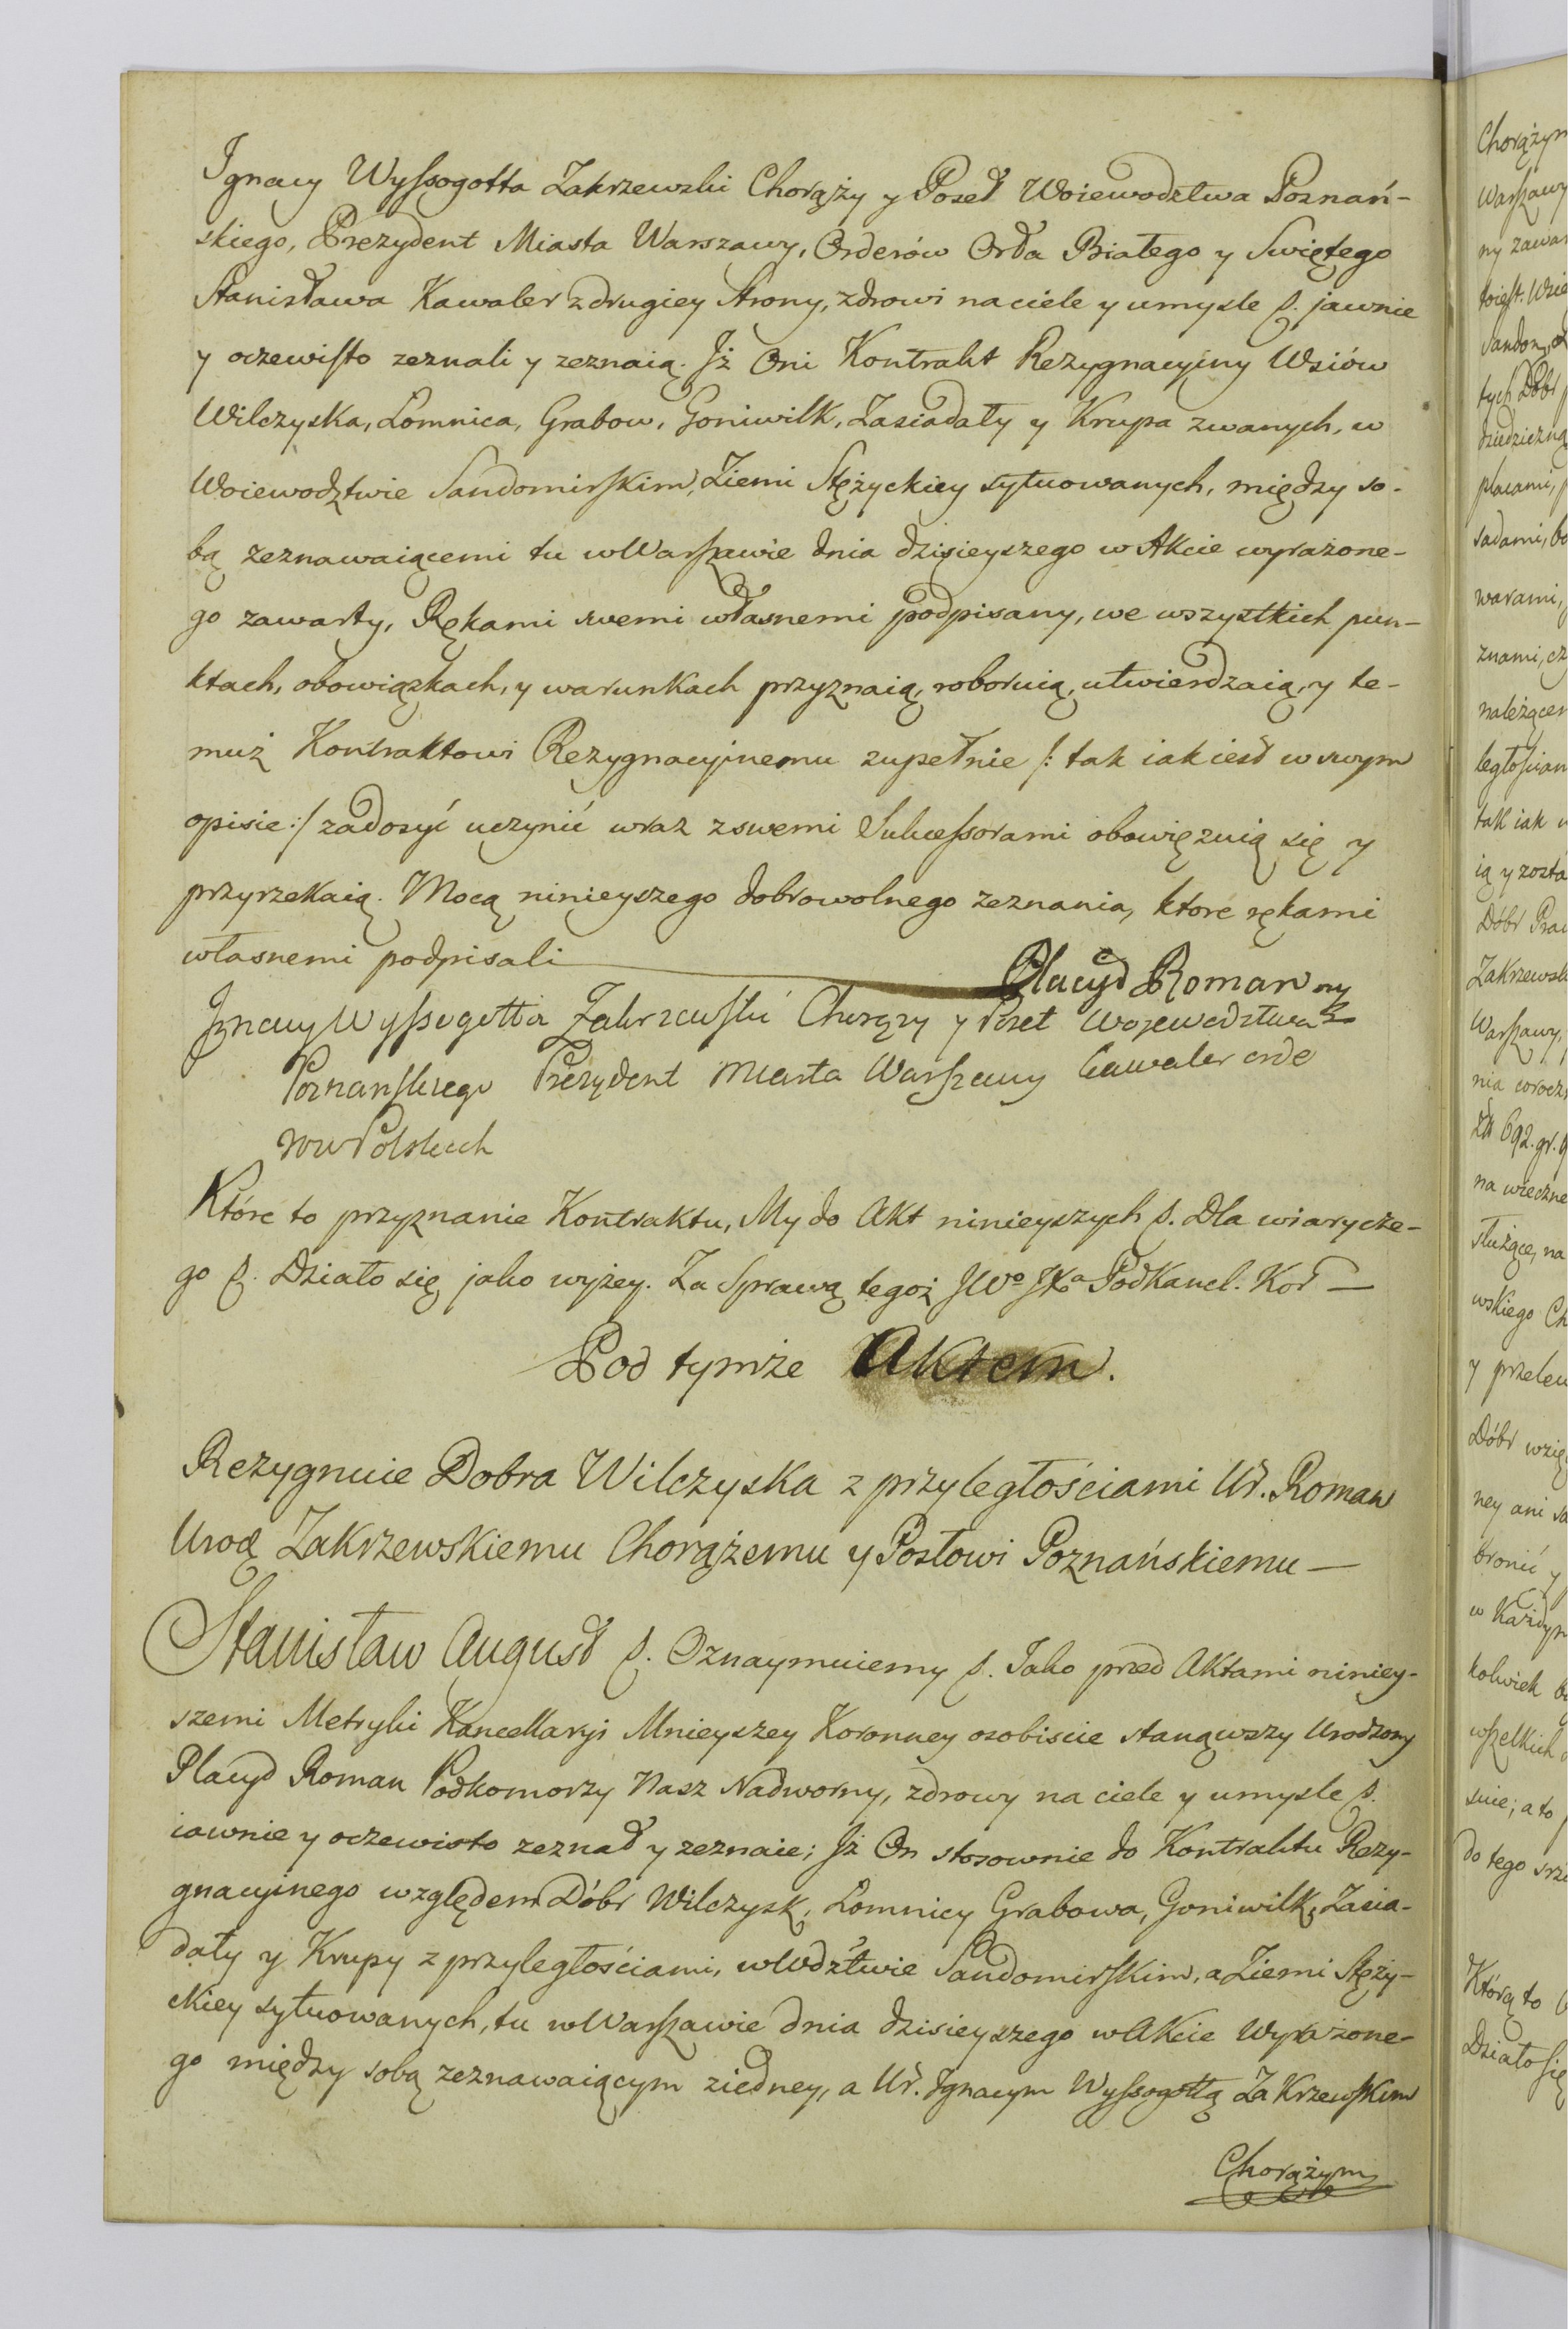 Ignacy Wyssogotta Zakrzewski Chorąży y Poseł Woiewodztwa Poznań-
skiego, Prezydent Miasta Warszawy, Orderów Orła Białego y Swiętego
Stanisława Kawaler z drugiey strony, zdrowi na ciele y umysle p. jawnie
y oczewisto zeznali y zeznaią. Iż Oni Kontrakt Rezygnacyiny Wsiów
Wilczyska, Łomnica, Grabow, Goniwilk, Zasiadały y Krupa zwanych, w
Woiewodztwie Sandomirskim, Ziemi Stężyckiey sytuowanych, między so-
bą zeznawaiącemi tu w Warszawie dnia dzisieyszego w Akcie wyrażone-
go zawarty, Rękami swemi własnemi podpisany, we wszystkich pun-
ktach, obowiązkach, y warunkach przyznaią, roboruią, utwierdzaią, y te-
muż Kontraktowi Rezygnacyinemu zupełnie /: tak iak iest w swym
opisie :/ zadosyć uczynić wraz z swemi Sukcessorami obowięzuią się y
przyrzekaią. Mocą ninieyszego dobrowolnego zeznania, które rękami
własnemi podpisali
Placyd Roman
Ignacy Wyssogotta Zakrzewski Chorązy y Poseł Wojewodztwa
Poznanskiego Prezydent Miasta Warszawy Kawaler orde
row Polskich
Które to przyznanie Kontraktu, My do Akt ninieyszych p. Dla wiary cze-
go p. Działo się jako wyżey. Za Sprawą tegoż JWo JKa PodKancl. Kor
Pod tymże Aktem.
Rezygnuie Dobra Wilczyska z przyległościami Ur. Roman
Urod Zakrzewskiemu Chorążemu y Posłowi Poznańskiemu
Stanisław August p. Oznaymuiemy p. Iako przed Aktami niniey-
szemi Metryki Kancellaryi Mnieyszey Koronney osobiscie stanąwszy Urodzony
Placyd Roman Podkomorzy Nasz Nadworny, zdrowy na ciele y umysle p.
iawnie y oczewisto zeznał y zeznaie; Iż On stosownie do Kontraktu Rezy-
gnacyinego względem Dóbr Wilczysk, Łomnicy Grabowa, Goniwilk, Zasia-
dały y Krupy z przyległościami, w Wdztwie Sandomirskim, a Ziemi Stęży-
ckiey sytuowanych, tu w Warszawie dnia dzisieyszego w Akcie Wyrażone-
go między sobą zeznawaiącym ziedney, a Ur. Ignacym Wyssogottą Zakrzewskim
Chorążym